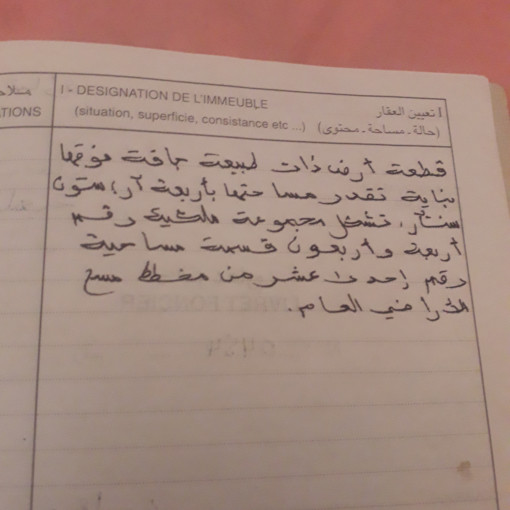 I - DESIGNATION DE L'IMMEUBLE
(situation, superficie, consistance etc ...)
I تعيين العقار
(حالة . مساحة . محتوى)
TIONS
قطعة أرض ذات طبيعة جافة فوقها
بناية تقدر مساحتها بأربعة آر، ستون
سنتآر، تشكل مجموعة ملكية رقم
أربعة وأربعون قسمة مساحية
رقم إحدى عشر من مخطط مسح
الأراضي العام.